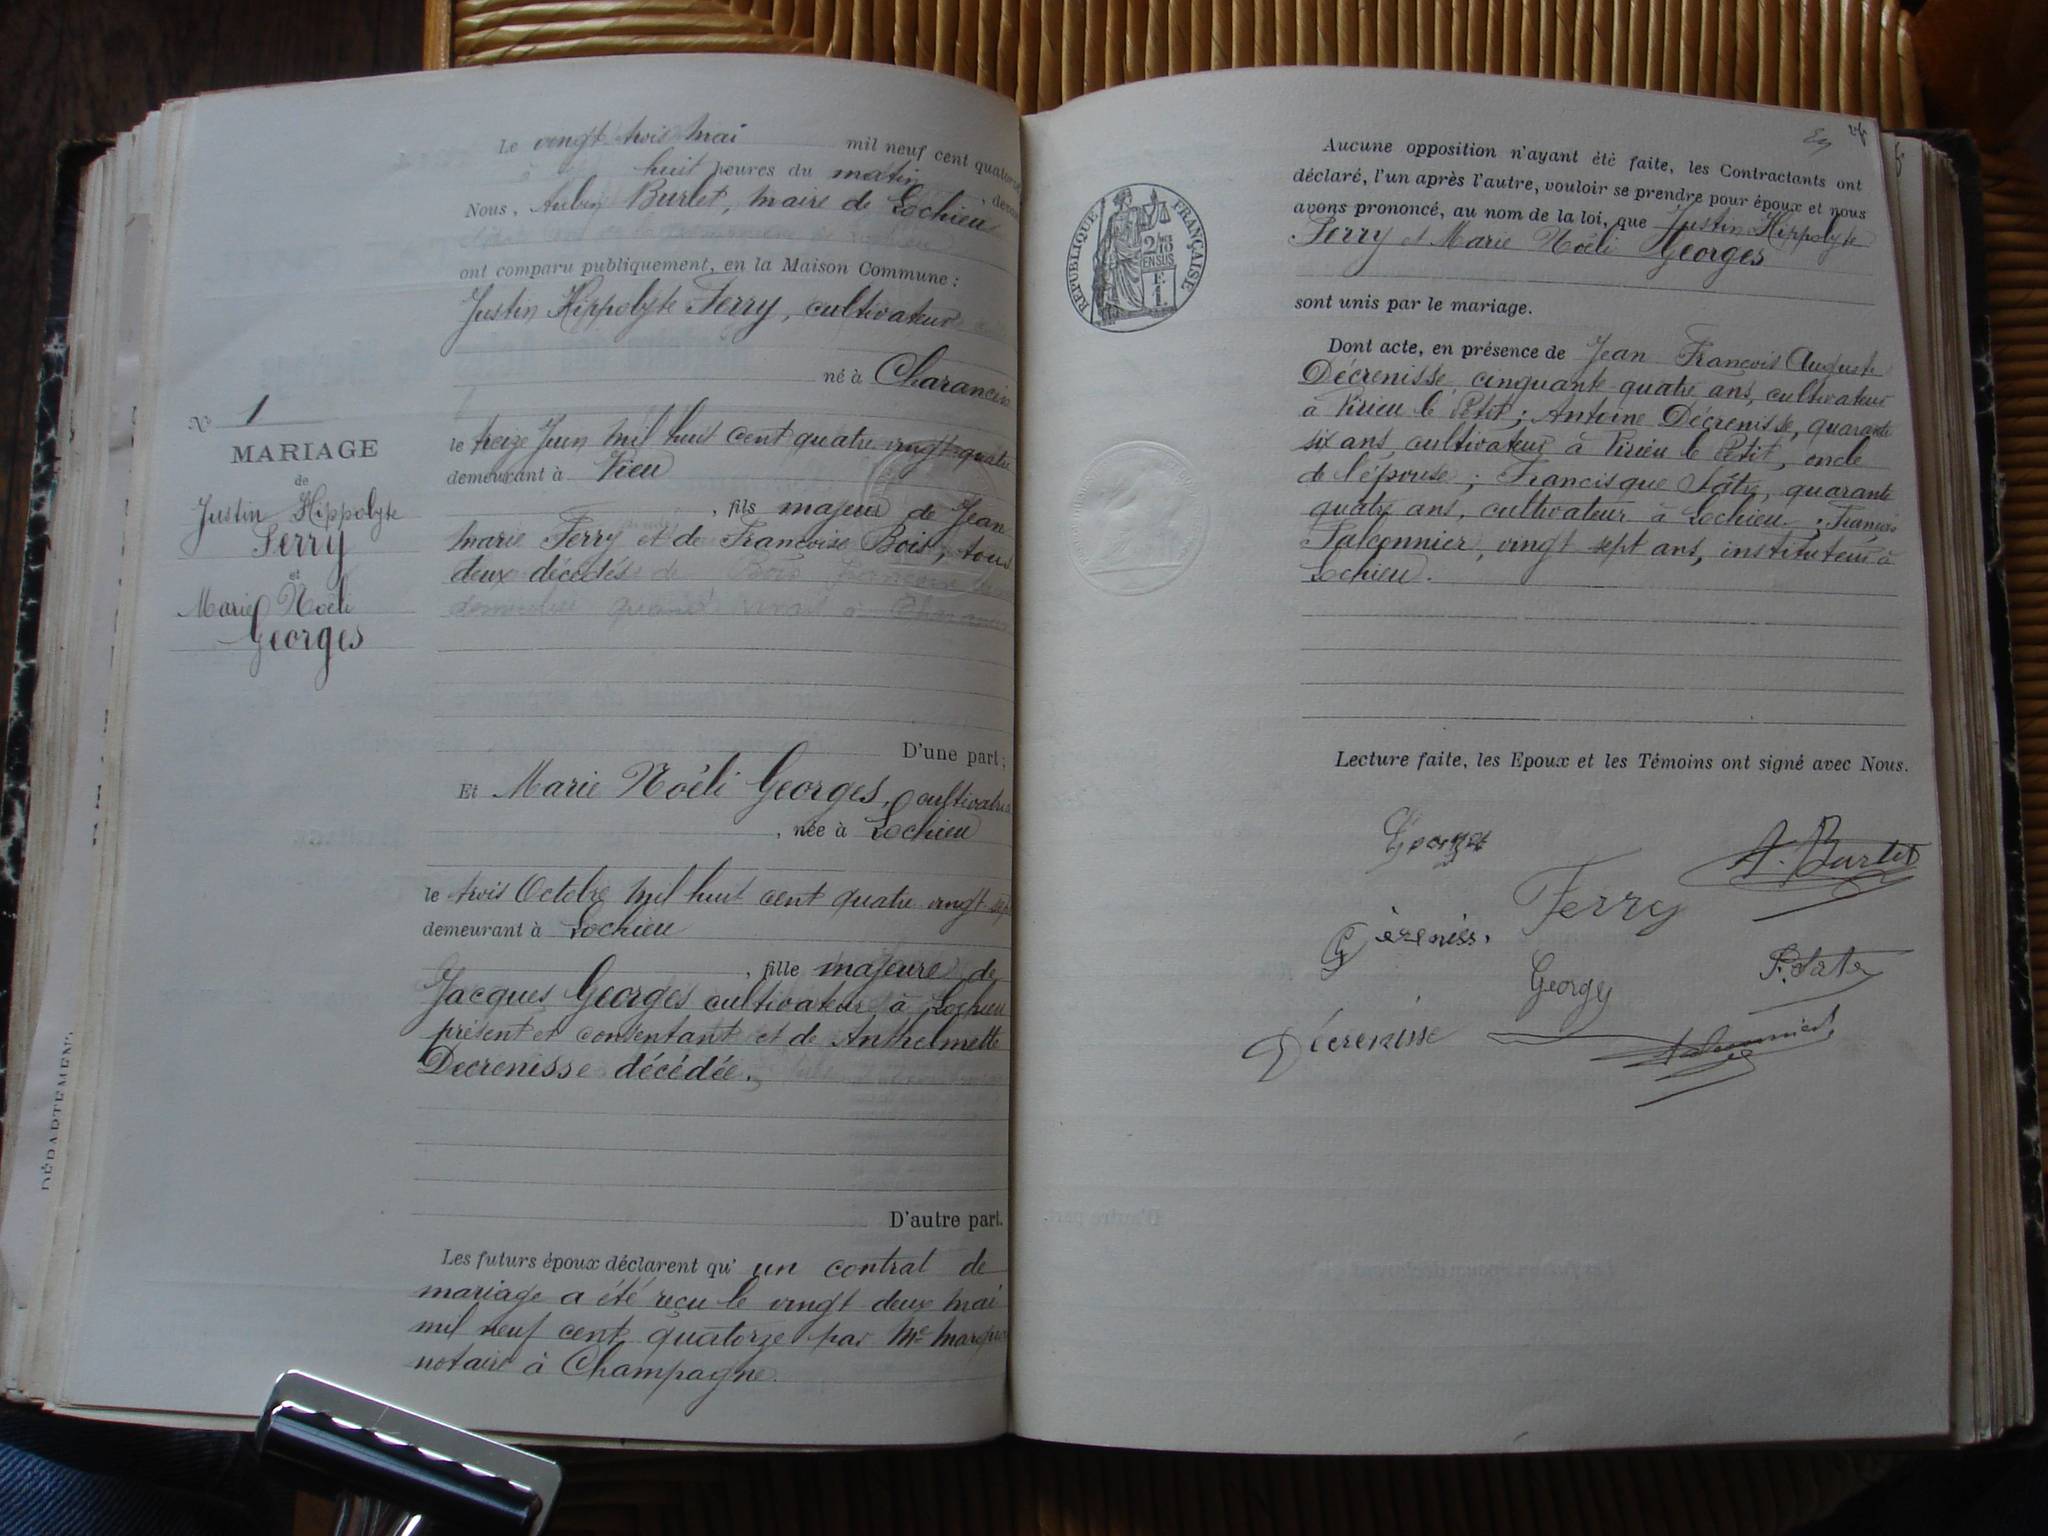 Le vingt trois mai mil neuf cent quatorze
à huit heures du matin, devant
Nous, Aubin Burlet, maire de Lochieu
ont comparu publiquement, en la Maison Commune :
Justin Hippolyte Ferry, cultivateur
né à Charancin
le treize Juin mil huit cent quatre vingt quatre
demeurant à Vieu
, fils majeur de Jean
marie Ferry et de Françoise Bois, tous
deux décédés
D'une part ;
Et Marie Noéli Georges, cultivatrice
, née à Lochieu
le trois Octobre mil huit cent quatre vingt sept
demeurant à Lochieu
, fille majeure de
Jacques Georges cultivateur à Lochieu
présent et consentant et de Anthelmette
Decrenisse décédée.
D'autre part.
Les futurs époux déclarent qu' un contrat de
mariage a été reçu le vingt deux mai
mil neuf cent quatorze par Me
notaire à Champagne.
No 1
MARIAGE
de
Justin Hippolyte
Ferry
et
Marie Noéli
Georges
DÉPARTEMENT
RÉPUBLIQUE FRANÇAISE
2/10
EN SUS
F.
1.
Aucune opposition n'ayant été faite, les Contractants ont
déclaré, l'un après l'autre, vouloir se prendre pour époux et nous
avons prononcé, au nom de la loi, que Justin Hippolyte
Ferry et Marie Noéli Georges
sont unis par le mariage.
Dont acte, en présence de Jean François Auguste
Décrenisse, cinquante quatre ans, cultivateur
à Virieu le Petit ; Antoine Décrenisse, quarante
six ans, cultivateur à Virieu le Petit, oncle
de l'épouse ; Francisque Sâtre, quarante
quatre ans, cultivateur à Lochieu ; François
Falconnier, vingt sept ans, instituteur à
Lochieu.
Lecture faite, les Epoux et les Témoins ont signé avec Nous.
Georges
A. Burlet
Ferry
Décrenisse